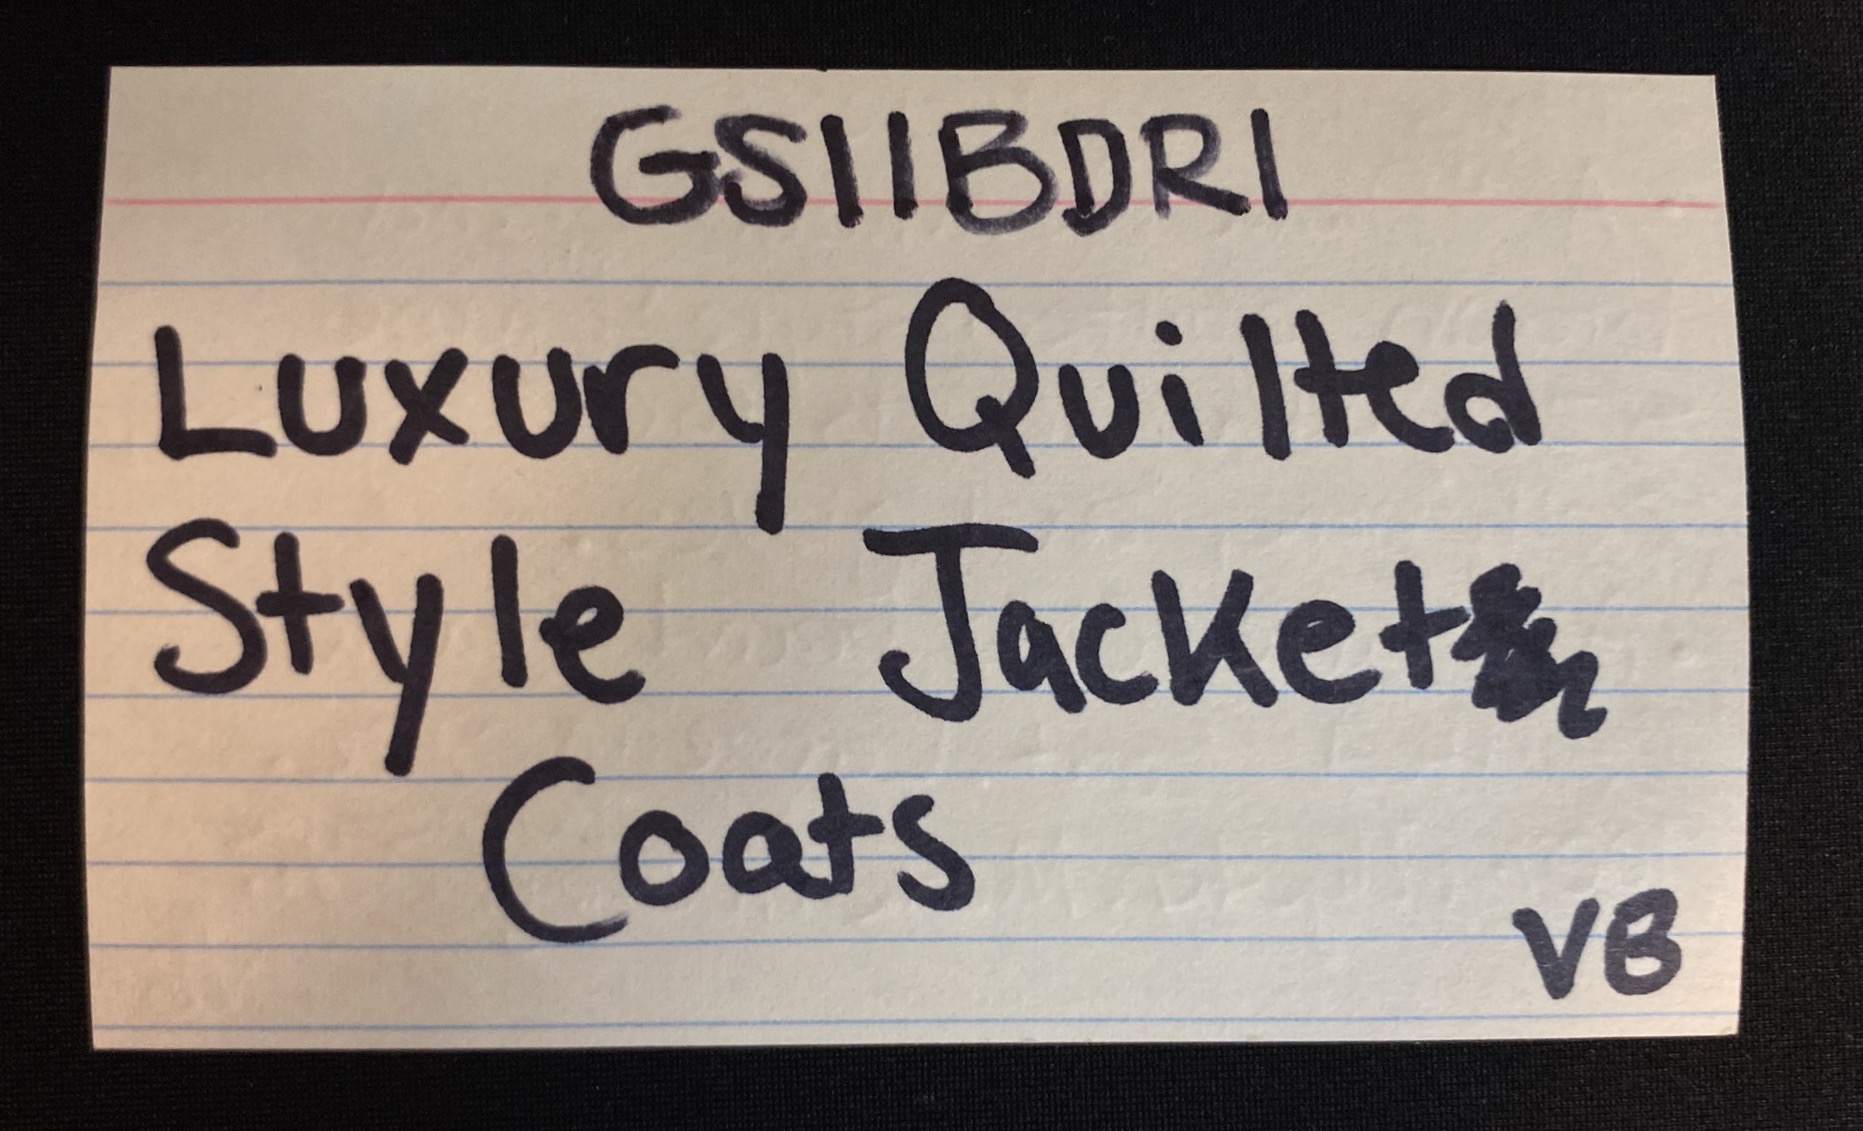 GS11BDR1
Luxury Quilted
Style Jacket
Coats
VB